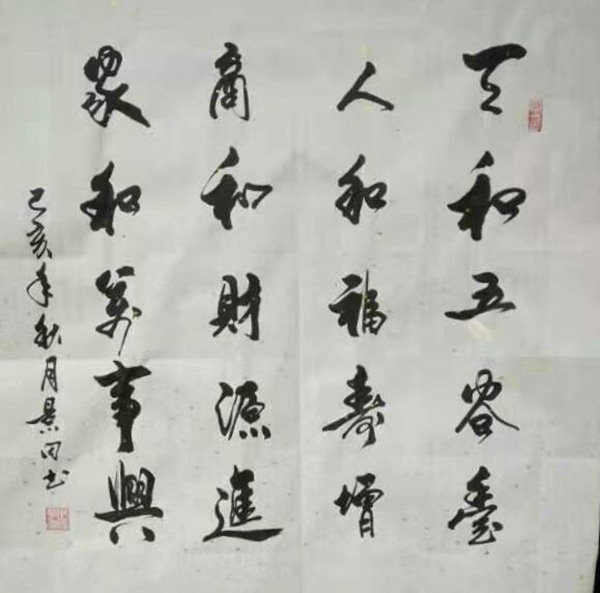 天和五谷臺
人和福寿增
商和財源進
家和万事興
己亥年秋月景同书